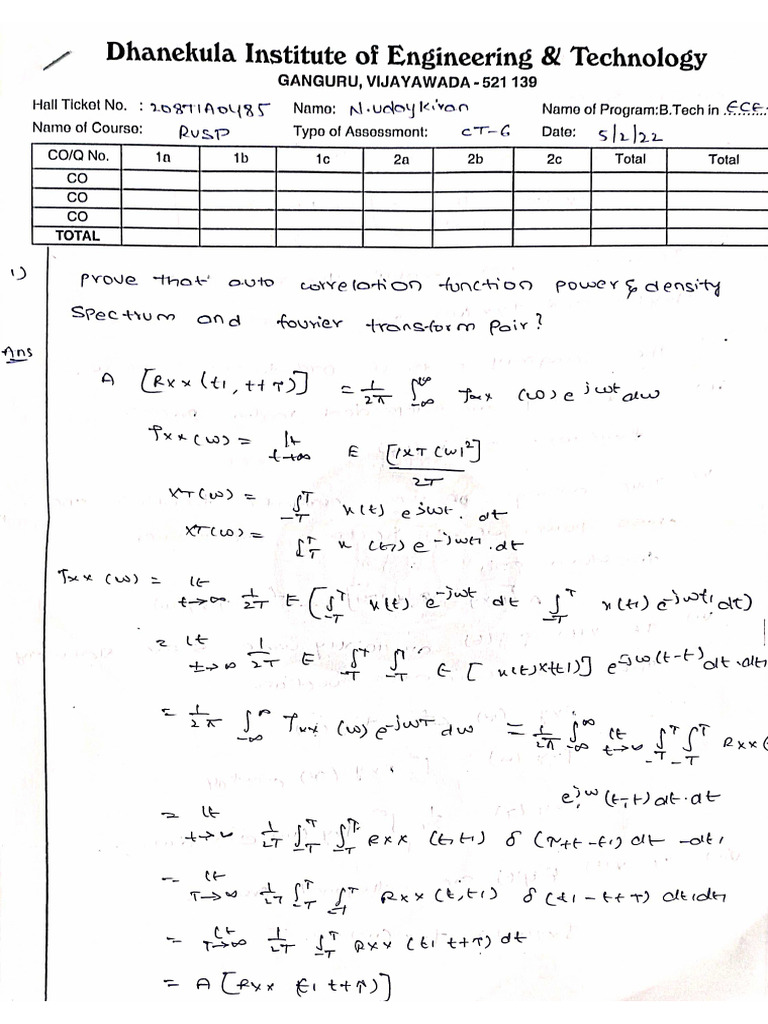 Dhanekula Institute of Engineering & Technology
GANGURU, VIJAYAWADA - 521 139
Hall Ticket No. : 20871A0485 Name: N.udaykiran Name of Program:B.Tech in .ECE.
Name of Course: RVSP Type of Assessment: CT-6 Date: 5/2/22
CO/Q No. 1a 1b 1c 2a 2b 2c Total Total
CO
CO
CO
TOTAL
1) Prove that auto correlation function power & density
Spectrum and fourier transform pair?
Ans
A [Rxx(t1, t+τ)] = 1/2π ∫-∞^∞ Sxx (ω) e^jωt dω
Sxx(ω) = lt t→∞ E [|XT(ω)|^2]/2T
XT(ω) = ∫-T^T x(t) e^jωt. dt
XT(ω) = ∫-T^T x (t1) e^-jωt1.dt
Sxx (ω) = lt t→∞ 1/2T E (∫-T^T x(t) e^-jωt dt ∫-T^T x(t1) e^-jωt1 dt)
= lt t→∞ 1/2T E ∫-T^T ∫-T^T E [x(t)x(t1)] e^-jω(t-t) dt.dt1
= 1/2π ∫-∞^∞ Sxx (ω) e^-jωτ dω = 1/2π ∫-∞^∞ lt t→∞ ∫-T^T ∫-T^T Rxx(
e^jω (t1-t) dt.dt
= lt t→∞ 1/2T ∫-T^T ∫-T^T Rxx (t,t1) δ (τ+t-t1) dt -dt1
= lt T→∞ 1/2T ∫-T^T ∫-T^T Rxx (t,t1) δ(t1-t+τ) dt1dt1
= lt T→∞ 1/2T ∫-T^T Rxx (t1 t+τ) dt
= A [Rxx (t1 t+τ)]